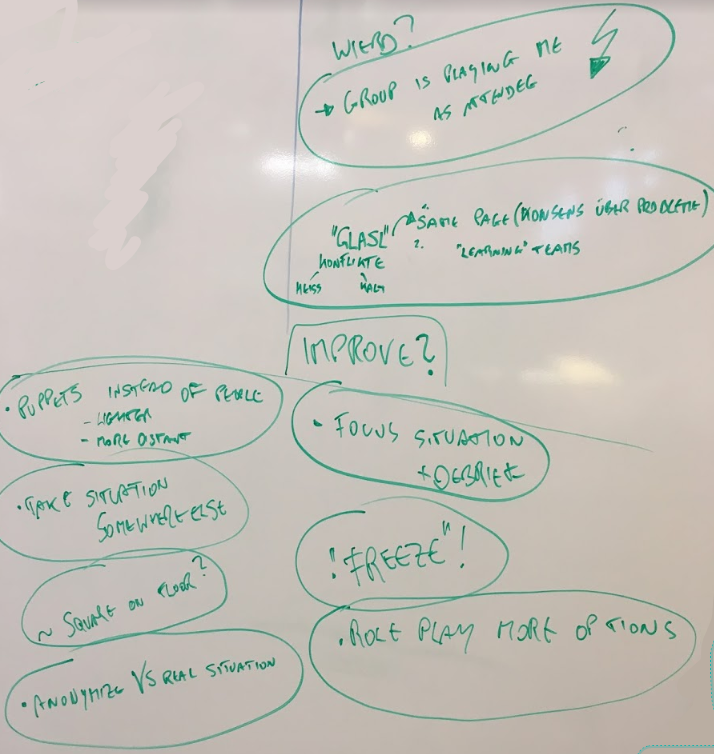 WIERD?
→ GROUP IS PLAYING ME
AS ATTENDEE
"GLASL" SAME PAGE (KONSENS ÜBER PROBLEME)
KONFLIKTE ? "LEARNING" TEAMS
HEISS KALT
IMPROVE?
• PUPPETS INSTEAD OF PEOPLE
- LIGHTER
- MORE DISTANT
• TAKE SITUATION
SOMEWHERE ELSE
~ SQUARE ON FLOOR?
• ANONYMIZE VS REAL SITUATION
• FOCUS SITUATION
+ DEBRIEF
! "FREEZE" !
• ROLE PLAY MORE OPTIONS